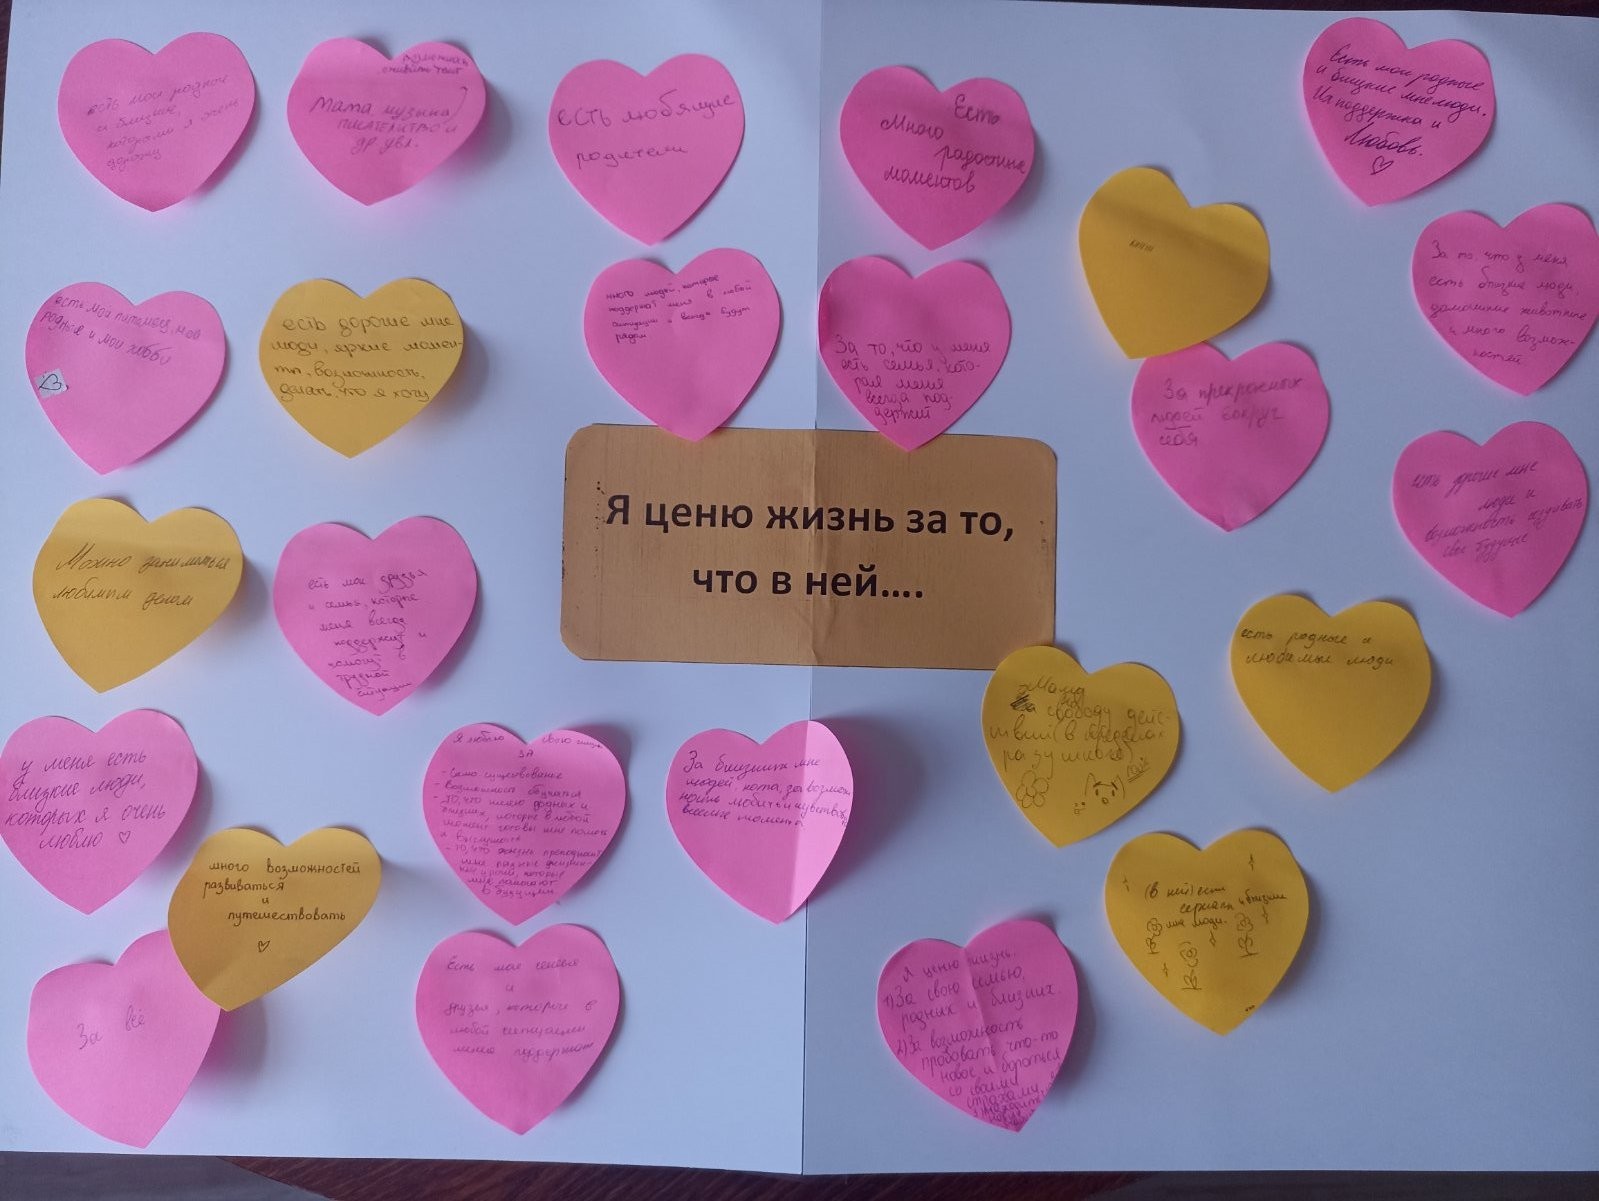 есть мои родные
и близкие,
которыми я очень
дорожу
Мама, музыка
писательство и
др. увл.
есть любящие
родители
Есть
много
радостных
моментов
Есть мои родные
и близкие мне люди.
Их поддержка и
Любовь.
есть мои питомцы, мои
родные и мои хобби
есть дорогие мне
люди, яркие момен-
ты, возможность,
делать, что я хочу
много людей, которые
поддержат меня в любой
ситуации и всегда будут
рядом
За то, что у меня
есть семья, кото-
рая меня
всегда под-
держит
За то, что у меня
есть близкие люди,
домашние животные
и много возмож-
ностей
За прекрасных
людей вокруг
себя
есть дорогие мне
люди и
возможность создавать
свое будущее
Я ценю жизнь за то,
что в ней....
Можно заниматься
любимым делом
есть мои друзья
и семья, которые
меня всегда
поддержит и
помощь в
трудной
ситуации
есть родные и
любимые люди
Мама
за свободу дейс-
твий (в пределах
разумного)
у меня есть
близкие люди,
которых я очень
люблю
Я люблю свою жизнь
за
- Само существование
- Возможность обучатся
- То, что имею родных и
близких, которые в любой
момент готовы мне помочь
и выслушать
- То, что жизнь преподносит
мне разные жизнен-
ные уроки, которые
мне помогают
в будущем
За близких мне
людей, кота, за возмож
ность любить и чувствовать
веселые моменты
много возможностей
развиваться
и
путешествовать
(в ней) есть
сериалы и близкие
мне люди.
За всё
Есть моя семья
и
друзья, которые в
любой ситуации
меня поддержат
Я ценю жизнь:
1) За свою семью,
родных и близких
2) За возможность
пробовать что-то
новое и бороться
со своими
страхами,